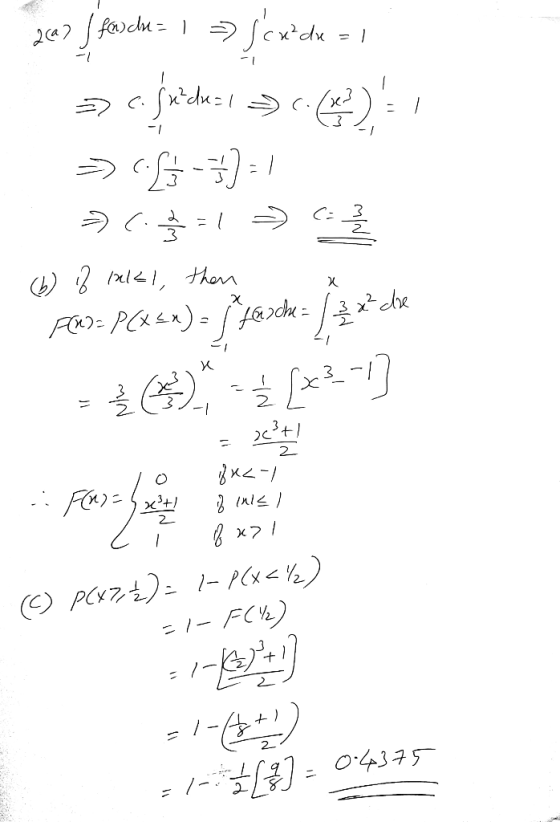 2(a) ∫_{-1}^{1} f(x)dx = 1 ⇒ ∫_{-1}^{1} cx²dx = 1
⇒ c. ∫_{-1}^{1} x²dx = 1 ⇒ c. (x³/3)_{-1}^{1} = 1
⇒ c.[1/3 - -1/3] = 1
⇒ c. 2/3 = 1 ⇒ c = 3/2
(b) if |x|≤1, then
F(x) = P(X≤x) = ∫_{-1}^{x} f(x)dx = ∫_{-1}^{x} 3/2 x² dx
= 3/2 (x³/3)_{-1}^{x} = 1/2 [x³ - -1]
= x³+1/2
∴ F(x) = { 0 if x<-1
x³+1/2 if |x|≤1
1 if x>1
(c) P(X≥1/2) = 1-P(X<1/2)
= 1- F(1/2)
= 1-[(1/2)³+1/2]
= 1-(1/8+1/2)
= 1- 1/2[9/8] = 0.4375